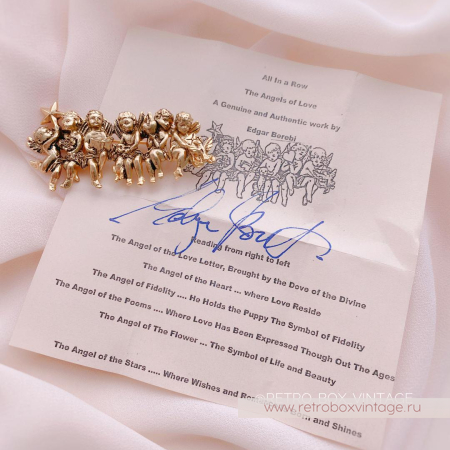 All In a Row
The Angels of Love
A Genuine and Authentic work by
Edgar Berebi
Reading from right to left
The Angel of the Love Letter, Brought by the Dove of the Divine
The Angel of the Heart ... where Love Reside
The Angel of Fidelity .... He Holds the Puppy The Symbol of Fidelity
The Angel of the Poems .... Where Love Has Been Expressed Though Out The Ages
The Angel of The Flower ... The Symbol of Life and Beauty
The Angel of the Stars ..... Where Wishes and and Shines
RETRO BOX VINTAGE
www.retroboxvintage.ru